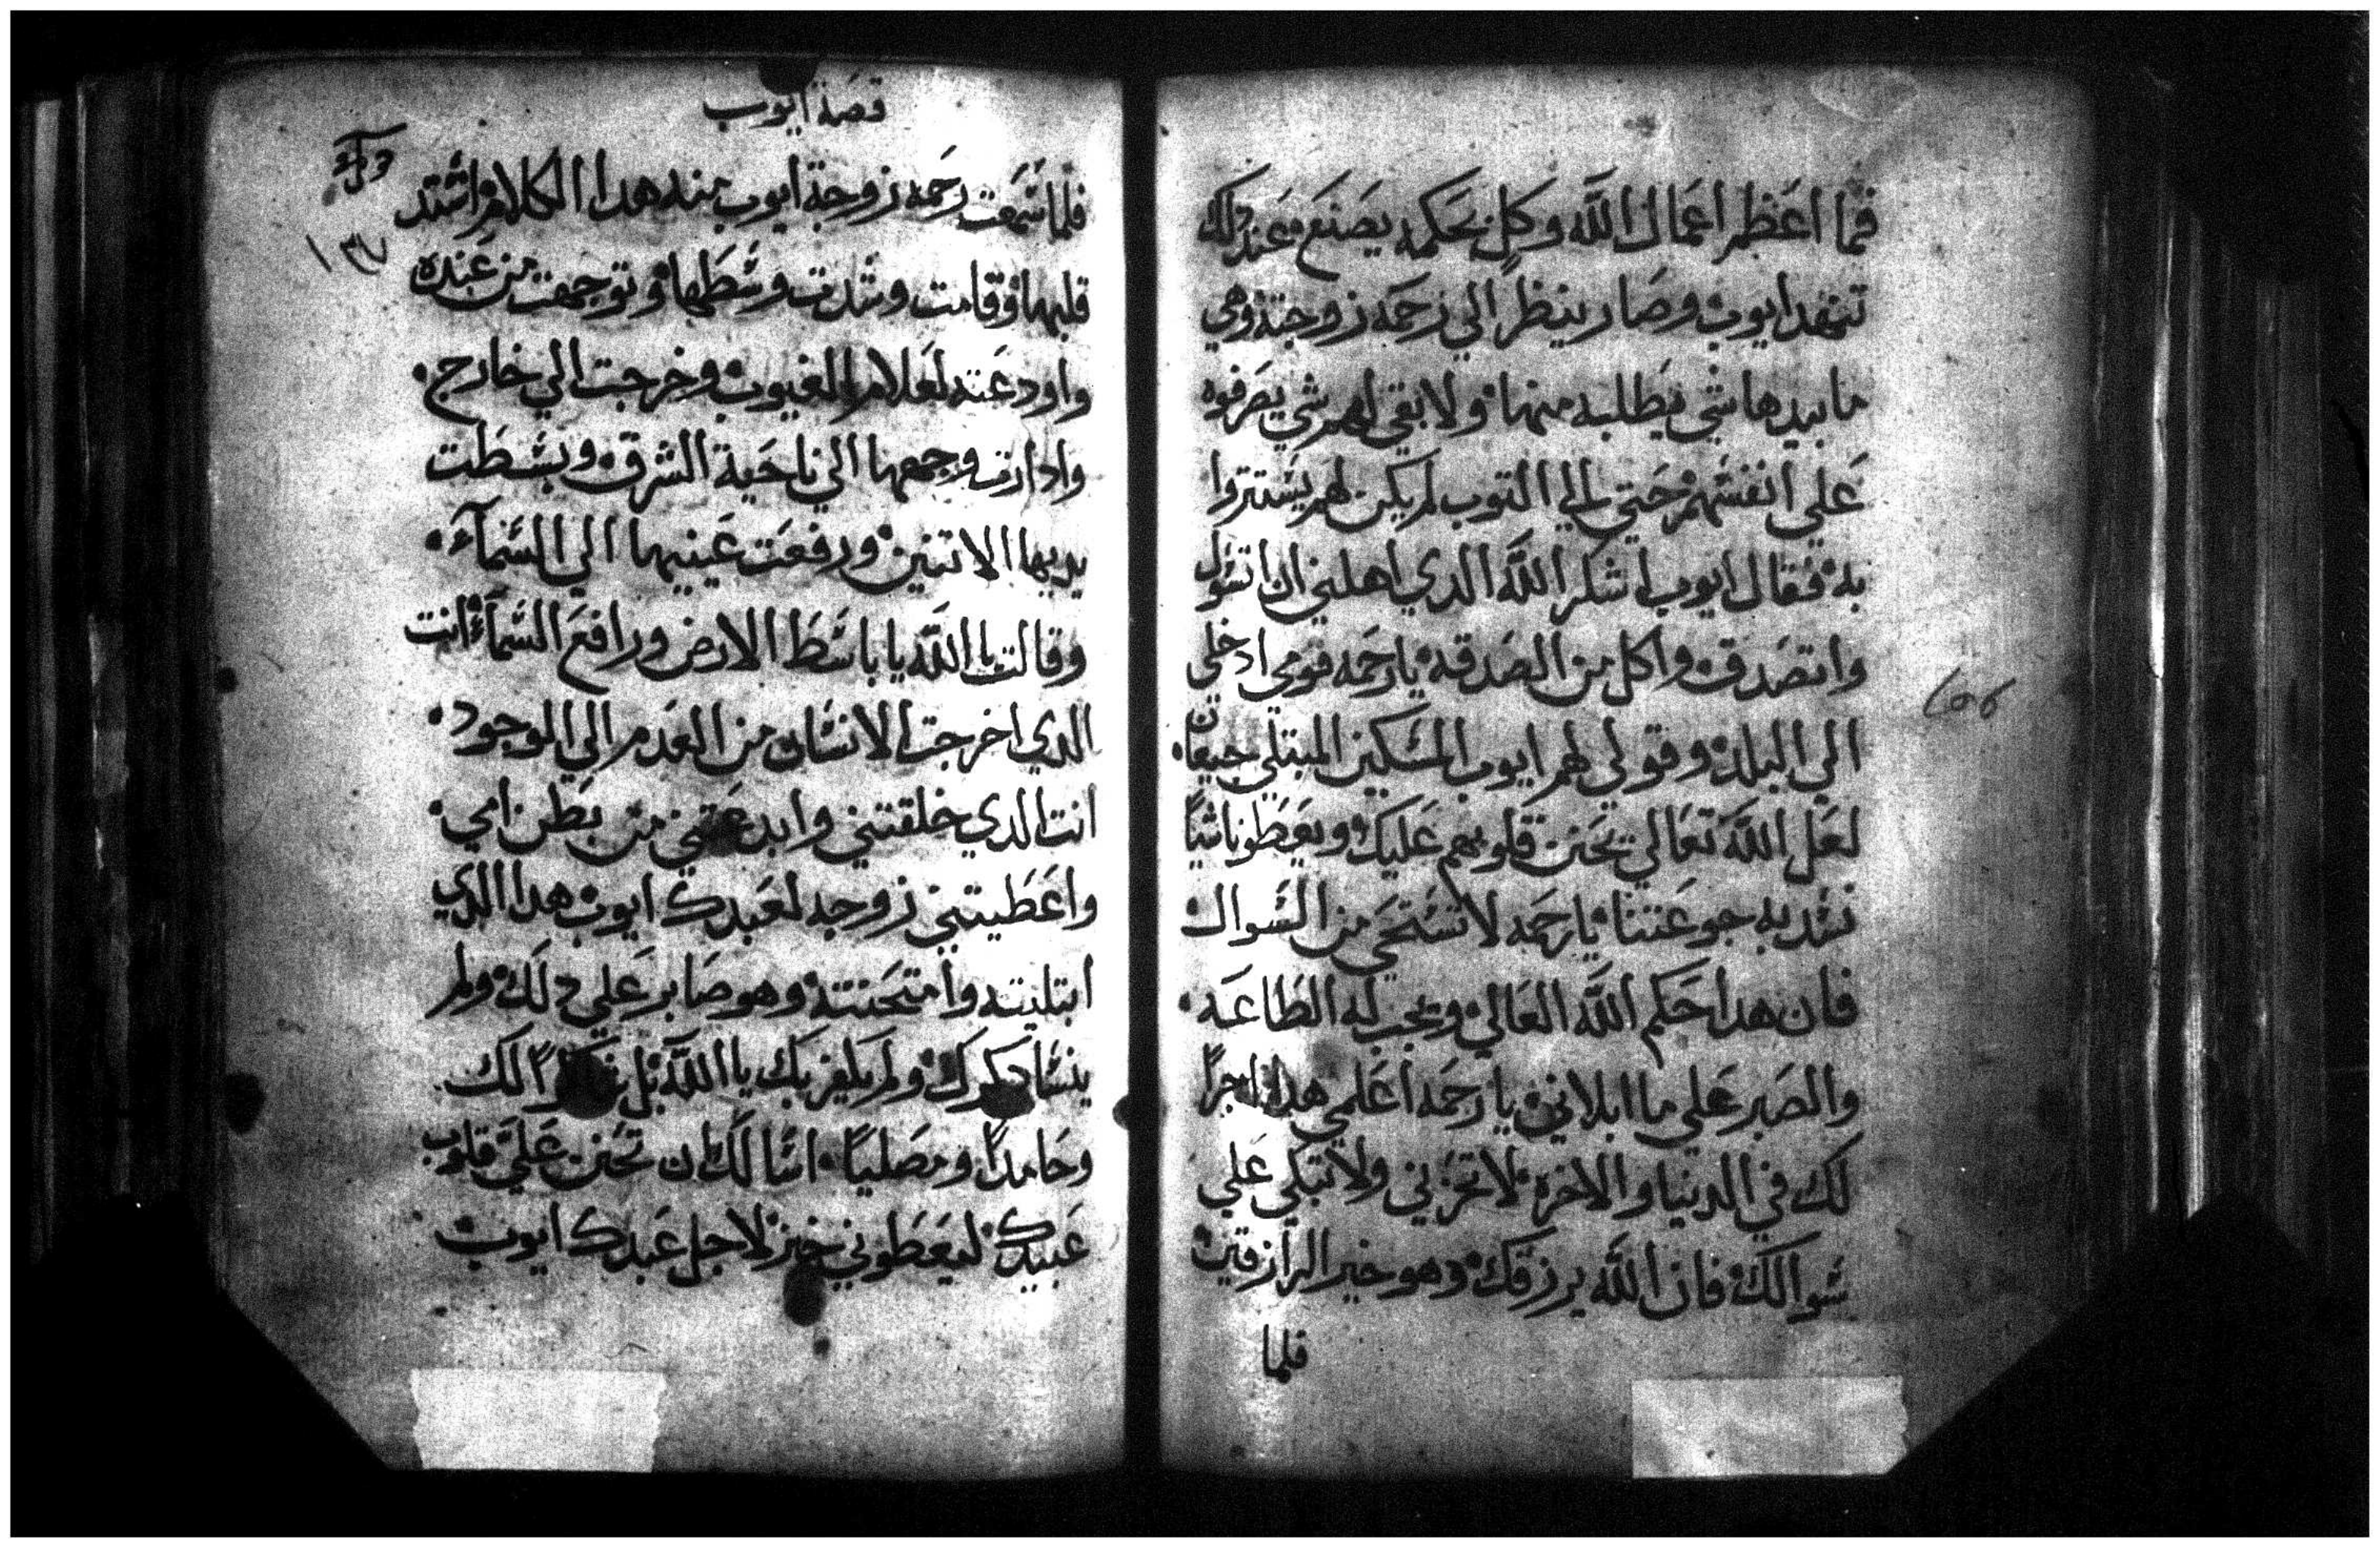 فما اعظم اعمال الله وكل بحكمه يصنع عند دلك
تنهد ايوب وصار ينظر الي رحمه زوجته وهي
ما بيدها شي يطلبه منها ولا بقي لهم شي يصرفوه
علي انفسهم حتي الي التوب لم يكن لهم يستتروا
به فقال ايوب اشكر الله الدي اهلني ان اتسول
واتصدق واكل من الصدقه يا رحمه قومي ادخلي
الي البلد وقولي لهم ايوب المسكين المبتلي جيعان
لعل الله تعالي يحنن قلوبهم عليك ويعطونا شياً
نشد به جوعتنا يا رحمه لا تستحي من السوال
فان هدا حكم الله العالي ويجب له الطاعه
والصبر علي ما ابلاني يا رحمه اعلمي هدا اجراً
لك في الدنيا والاخره لا تحزني ولا تبكي علي
سوالك فان الله يرزقك وهو خير الرازقين
فلما
قصة ايوب
١٣٧
فلما سمعت رحمه زوجة ايوب منه هدا الكلام اشتد
قلبها وقامت وشدت وسطها وتوجهت من عنده
واودعته لعلام الغيوب وخرجت الي خارج
وادارت وجهها الي ناحية الشرق وبسطت
يديها الاتنين ورفعت عينيها الي السمآء
وقالت يا الله يا باسط الارض ورافع السمآء انت
الدي اخرجت الانسان من العدم الي الموجود
انت الدي خلقتني وابدعتني من بطن امي
واعطيتني زوجه لعبدك ايوب هدا الدي
ابتليته وامتحنته وهو صابر علي دلك ولم
ينسا دكرك ولم يكفر بك يا الله بل شاكراً لك
وحامداً ومصلياً اسالك ان تحنن عليَّ قلوب
عبيدك ليعطوني خبز لاجل عبدك ايوب